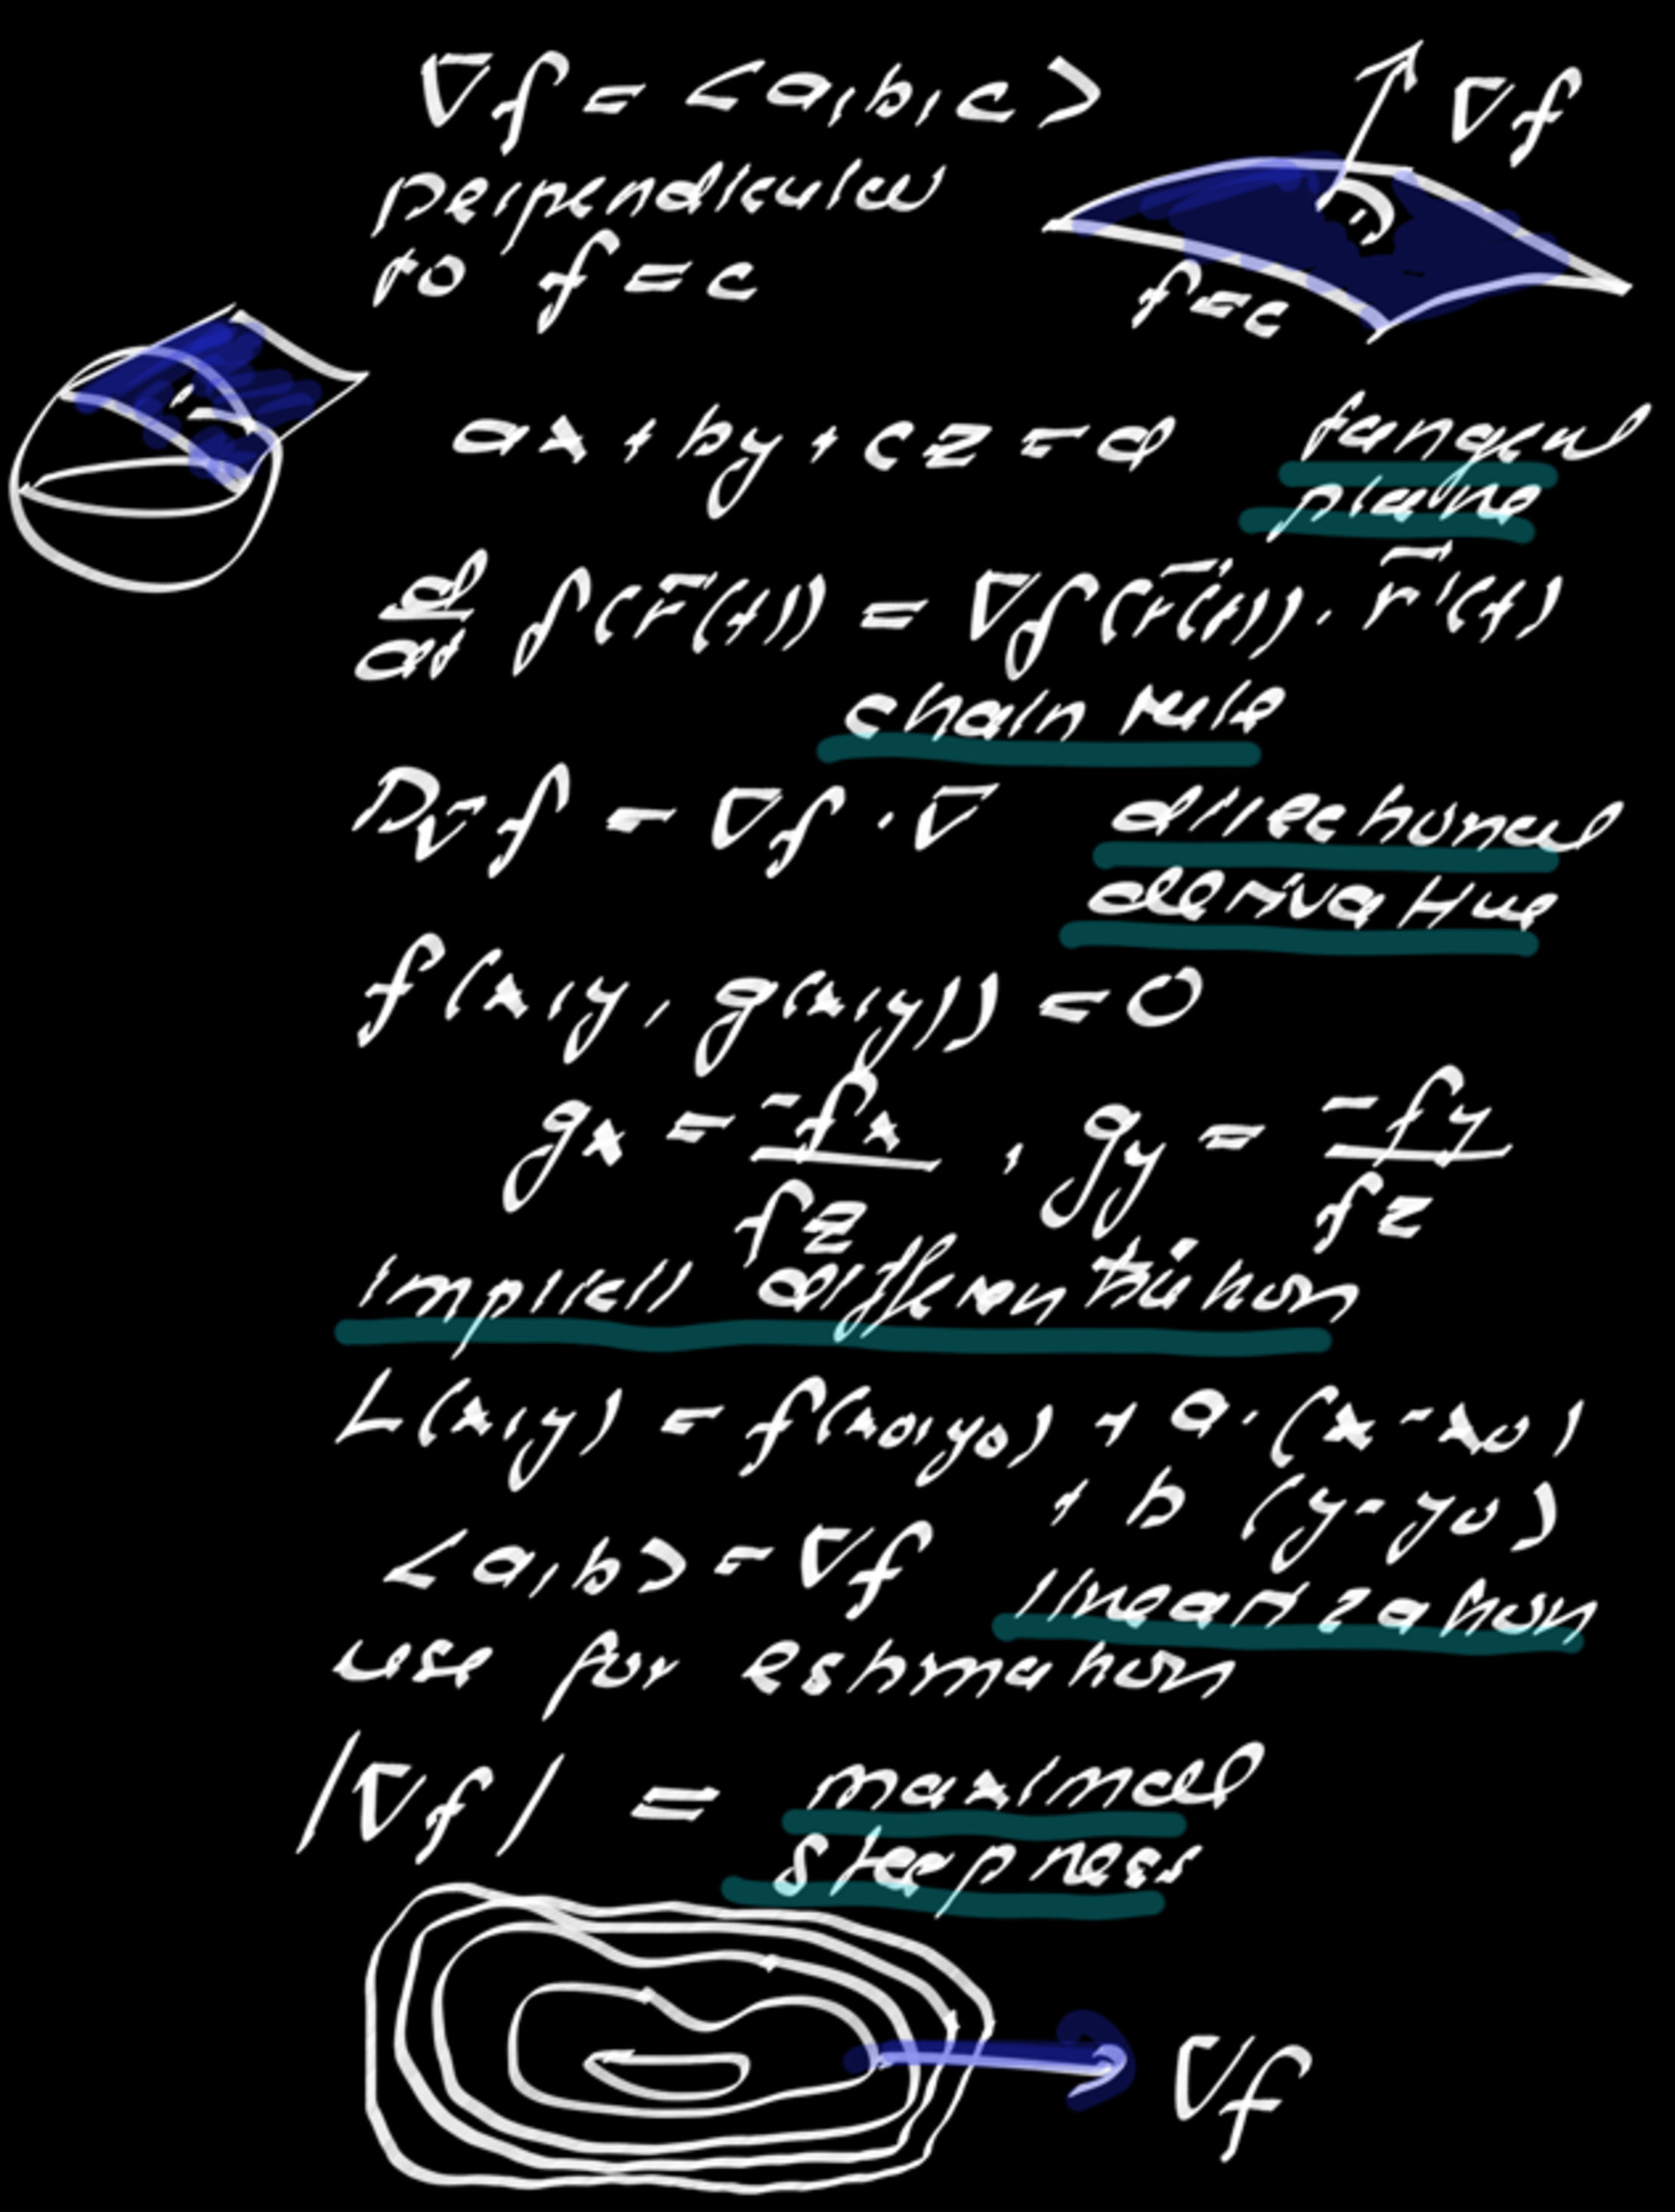 ∇f = <a,b,c>
perpendicular
to f = c
∇f
f=c
ax + by + cz = d tangent
plane
d/dt f(r⃗(t)) = ∇f(r⃗(t)) · r⃗'(t)
chain rule
D_v⃗ f = ∇f · v⃗ directional
derivative
f(x,y, g(x,y)) = 0
gx = -fx/fz , gy = -fy/fz
implicit differentiation
L(x,y) = f(x0,y0) + a·(x-x0)
+ b (y-y0)
<a,b> = ∇f linearization
use for estimation
|∇f| = maximal
steepness
∇f